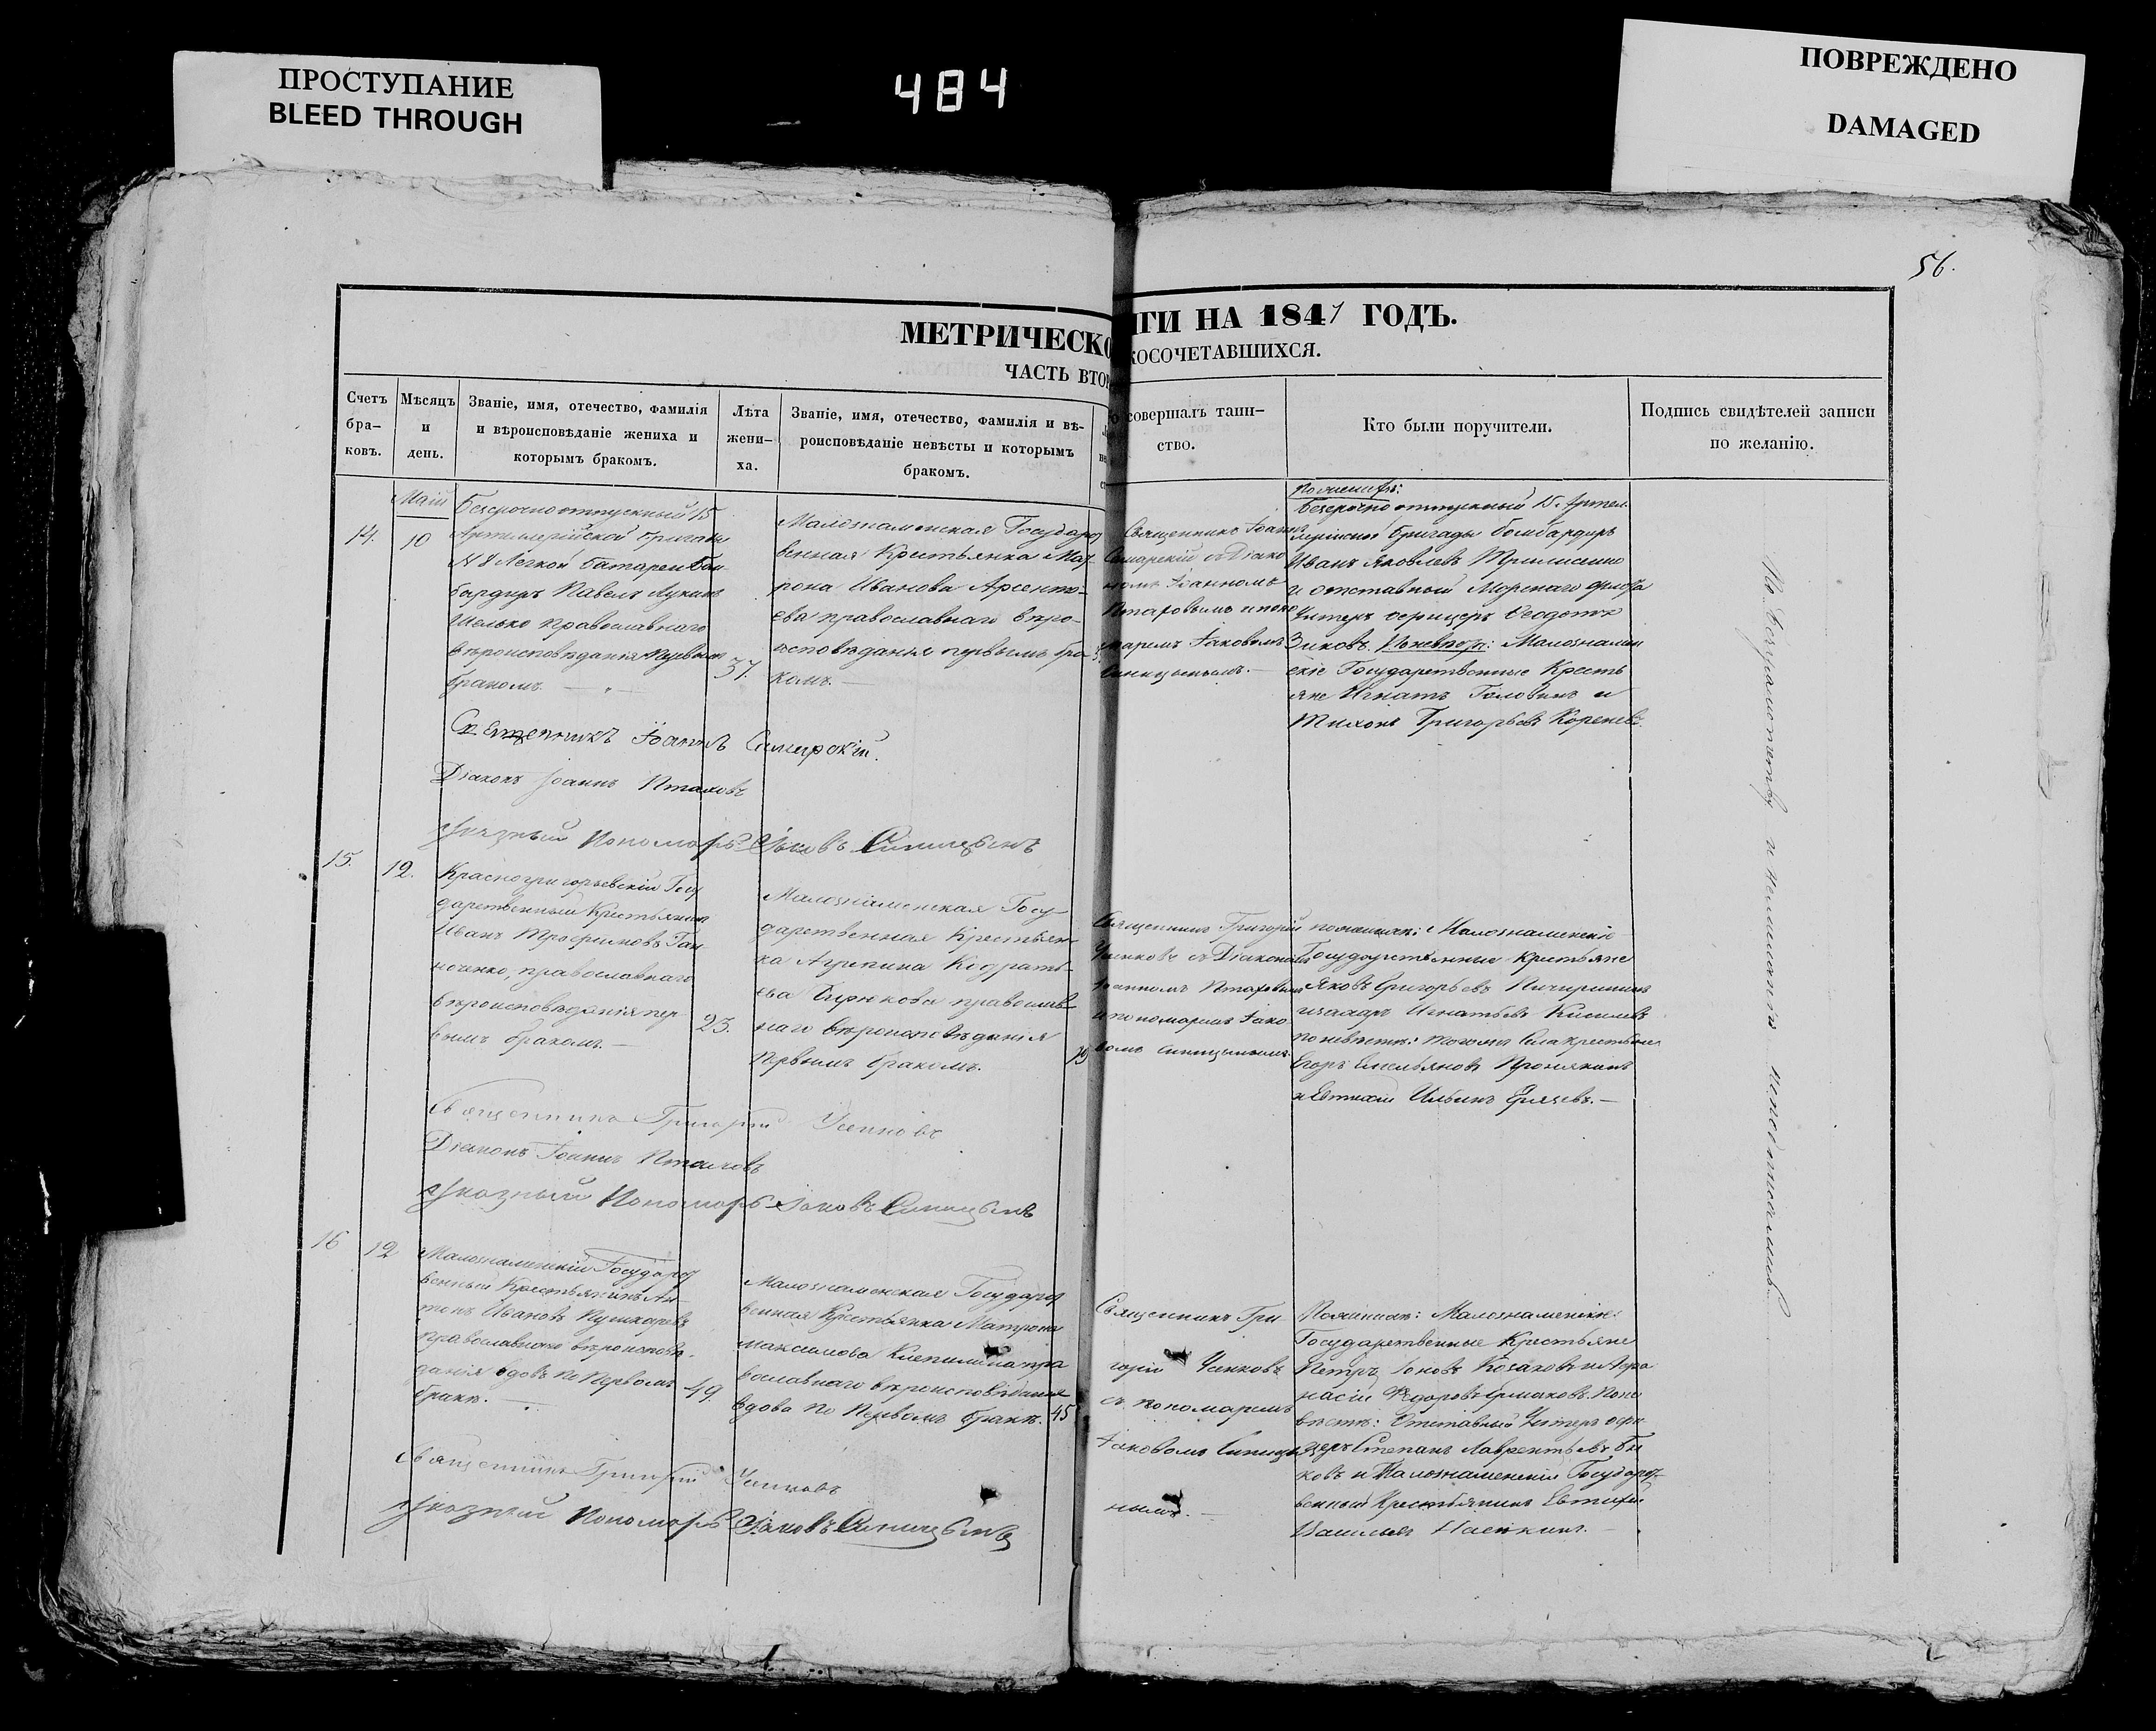 ПРОСТУПАНИЕ
BLEED THROUGH
484
ПОВРЕЖДЕНО
DAMAGED
56.
МЕТРИЧЕСКО
ГИ НА 1847 ГОДЪ.
ЧАСТЬ ВТОР
КОСОЧЕТАВШИХСЯ.
Счетъ бра-
ковъ.
Мѣсяцъ
и
день.
Званіе, имя, отечество, фамилія
и вѣроисповѣданіе жениха и
которымъ бракомъ.
Лѣта
жени-
ха.
Званіе, имя, отечество, фамилія и вѣ-
роисповѣданіе невѣсты и которымъ
бракомъ.
совершалъ таин-
ство.
Кто были поручители.
Подпись свидѣтелей записи
по желанію.
14.
Маій
10
Безсрочноотпускный 15
Артиллерійской бригады
№ 8 Легкой батареи Бом-
бардиръ Павелъ Лукинъ
православнаго
вѣроисповѣданія первымъ
бракомъ.
37.
Малознаменская Государст
венная Крестьянка Мат
рона Иванова Арсенть-
ева православнаго вѣро-
исповѣданія первымъ бра
комъ.
Священникъ Іоаннъ
Самарскій съ Діако
номъ Іоанномъ
Птаховымъ и поно
маремъ Іаковомъ
Синицынымъ.
По женихѣ:
безсрочноотпускный 15. Артил
лерійской бригады бомбардиръ
Иванъ Яковлевъ
и отставный Морскаго флота
Унтеръ офицеръ Ѳеодотъ
Зиковъ. По невѣстѣ: Малознамен
скіе Государственные Кресть
яне Игнатъ Головинъ и
Тихонъ Григорьевъ Кореневъ.
Священникъ Іоаннъ Самарскій.
Діаконъ Іоаннъ Птаховъ
Указный Пономарь Іаковъ Синицынъ
15.
12.
Красногригорьевскій Госу
дарственный Крестьянинъ
Иванъ Трофимовъ Ган
ноченко, православнаго
вѣроисповѣданія пер-
вымъ бракомъ.
23.
Малознаменская Госу-
дарственная Крестьян-
ка Агрипина Кодрать-
ева Бирюкова православ
наго вѣроисповѣданія
первымъ бракомъ.
19
Священникъ Григорій
Усенковъ съ Діакономъ
Іоанномъ Птаховымъ
и пономаремъ Іако
вомъ Синицынымъ.
по женихѣ: Малознаменскіе
Государственные Крестьяне
Яковъ Григорьевъ
Игнатьевъ Киселевъ
по невѣстѣ: тогожъ Села Крестьяне
Егоръ Емельяновъ Пронякинъ
и Евтихій Ильинъ
Священникъ Григорій Усенковъ
Діаконъ Іоаннъ Птаховъ
Указный Пономарь Іаковъ Синицынъ
16
12
Малознаменскій Государст
венный Крестьянинъ Ан-
тонъ Ивановъ Пушкаревъ
православнаго вѣроисповѣ-
данія вдовъ по первомъ
бракѣ.
49.
Малознаменская Государст
венная Крестьянка Матрона
Максимова пра
вославнаго вѣроисповѣданія
вдова по первомъ бракѣ.
45
Священникъ Гри
горій Усенковъ
съ пономаремъ
Іаковомъ Синицы
нымъ.
По женихѣ: Малознаменскіе
Государственные Крестьяне
Петръ Іоновъ Козаковъ и Аѳа
насій Ѳедоровъ Ермаковъ. По не
вѣстѣ: Отставный Унтеръ офи
церъ Степанъ Лаврентьевъ Бы
ковъ и Малознаменскій Государст-
венный Крестьянинъ Евтихій
Васильевъ
Священникъ Григорій Усенковъ
Указный Пономарь Іаковъ Синицынъ
По безграмотству и нежеланію неподписались